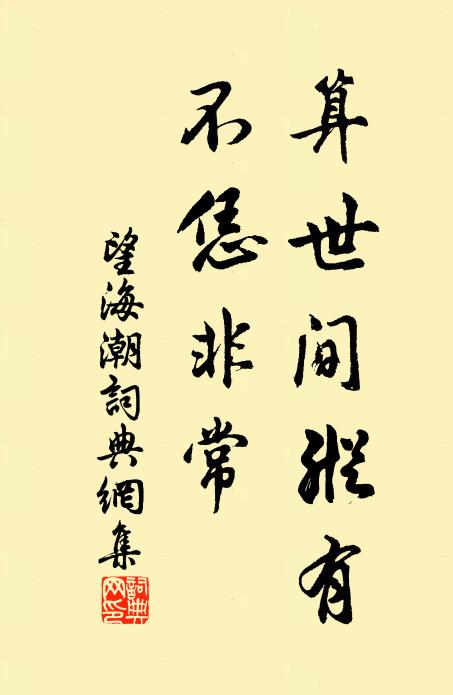 算世間縱有
不恁非常
望海潮詞典網集
詞典
網印